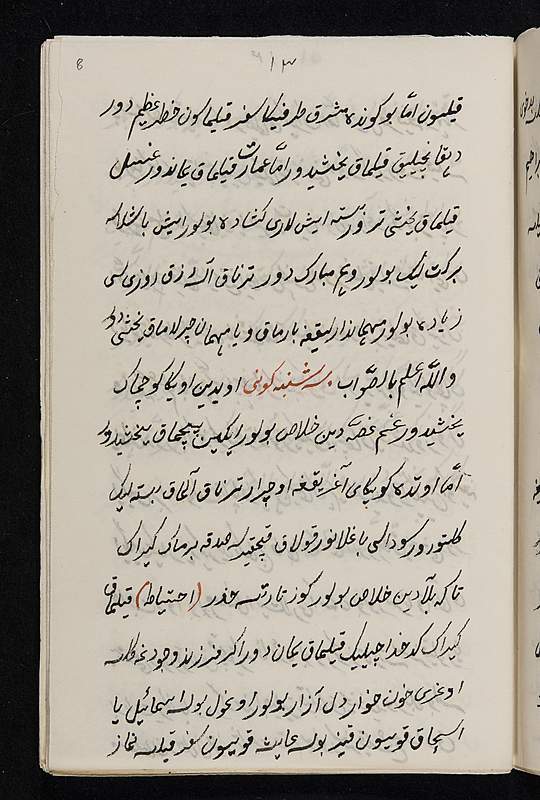 8
١٣
قیلسون امّا بو کونده مشرق طرفیکا سفر قیلماسون خطر عظیم دور
دیقانچیلیق قیلماق یخشیدور امّا عمارت قیلماق یماندور غسل
قیلماق یخشی تر و بسته ایش لاری کشاده بولور ایش باشلاسه
برکت لیک بولور ویم مبارک دور ترناق آلسه رزق روزی لسی
زیاده بولور مهماندارلیقغه بارماق و یا مهمان چرلاماق یخشی دور
والله اعلم بالصّواب سه شنبه کونی اویدین اویکا کوچماک
یخشیدور غم غصّه دین خلاص بولور ایکین بیچماق یخشیدور
امّا اوتده کویکای آغریقغه اوچرار ترناق آلماق بسته لیک
کلتورور سودالسی باغلانور قولاق قیچقیرسه صدقه برماک کیراک
تا که بلآدین خلاص بولور کوز تارتسه حذر (احتیاط) قیلماق
کیراک کدخداچیلیک قیلماق یمان دور اکر فرزند وجودغه کلسه
اوغری خون خوار دل آزار بولور اوغول بولسه اسمائیل یا
اسحاق قویسون قیز بولسه عایشه قویسون سفر قیلسه نماز